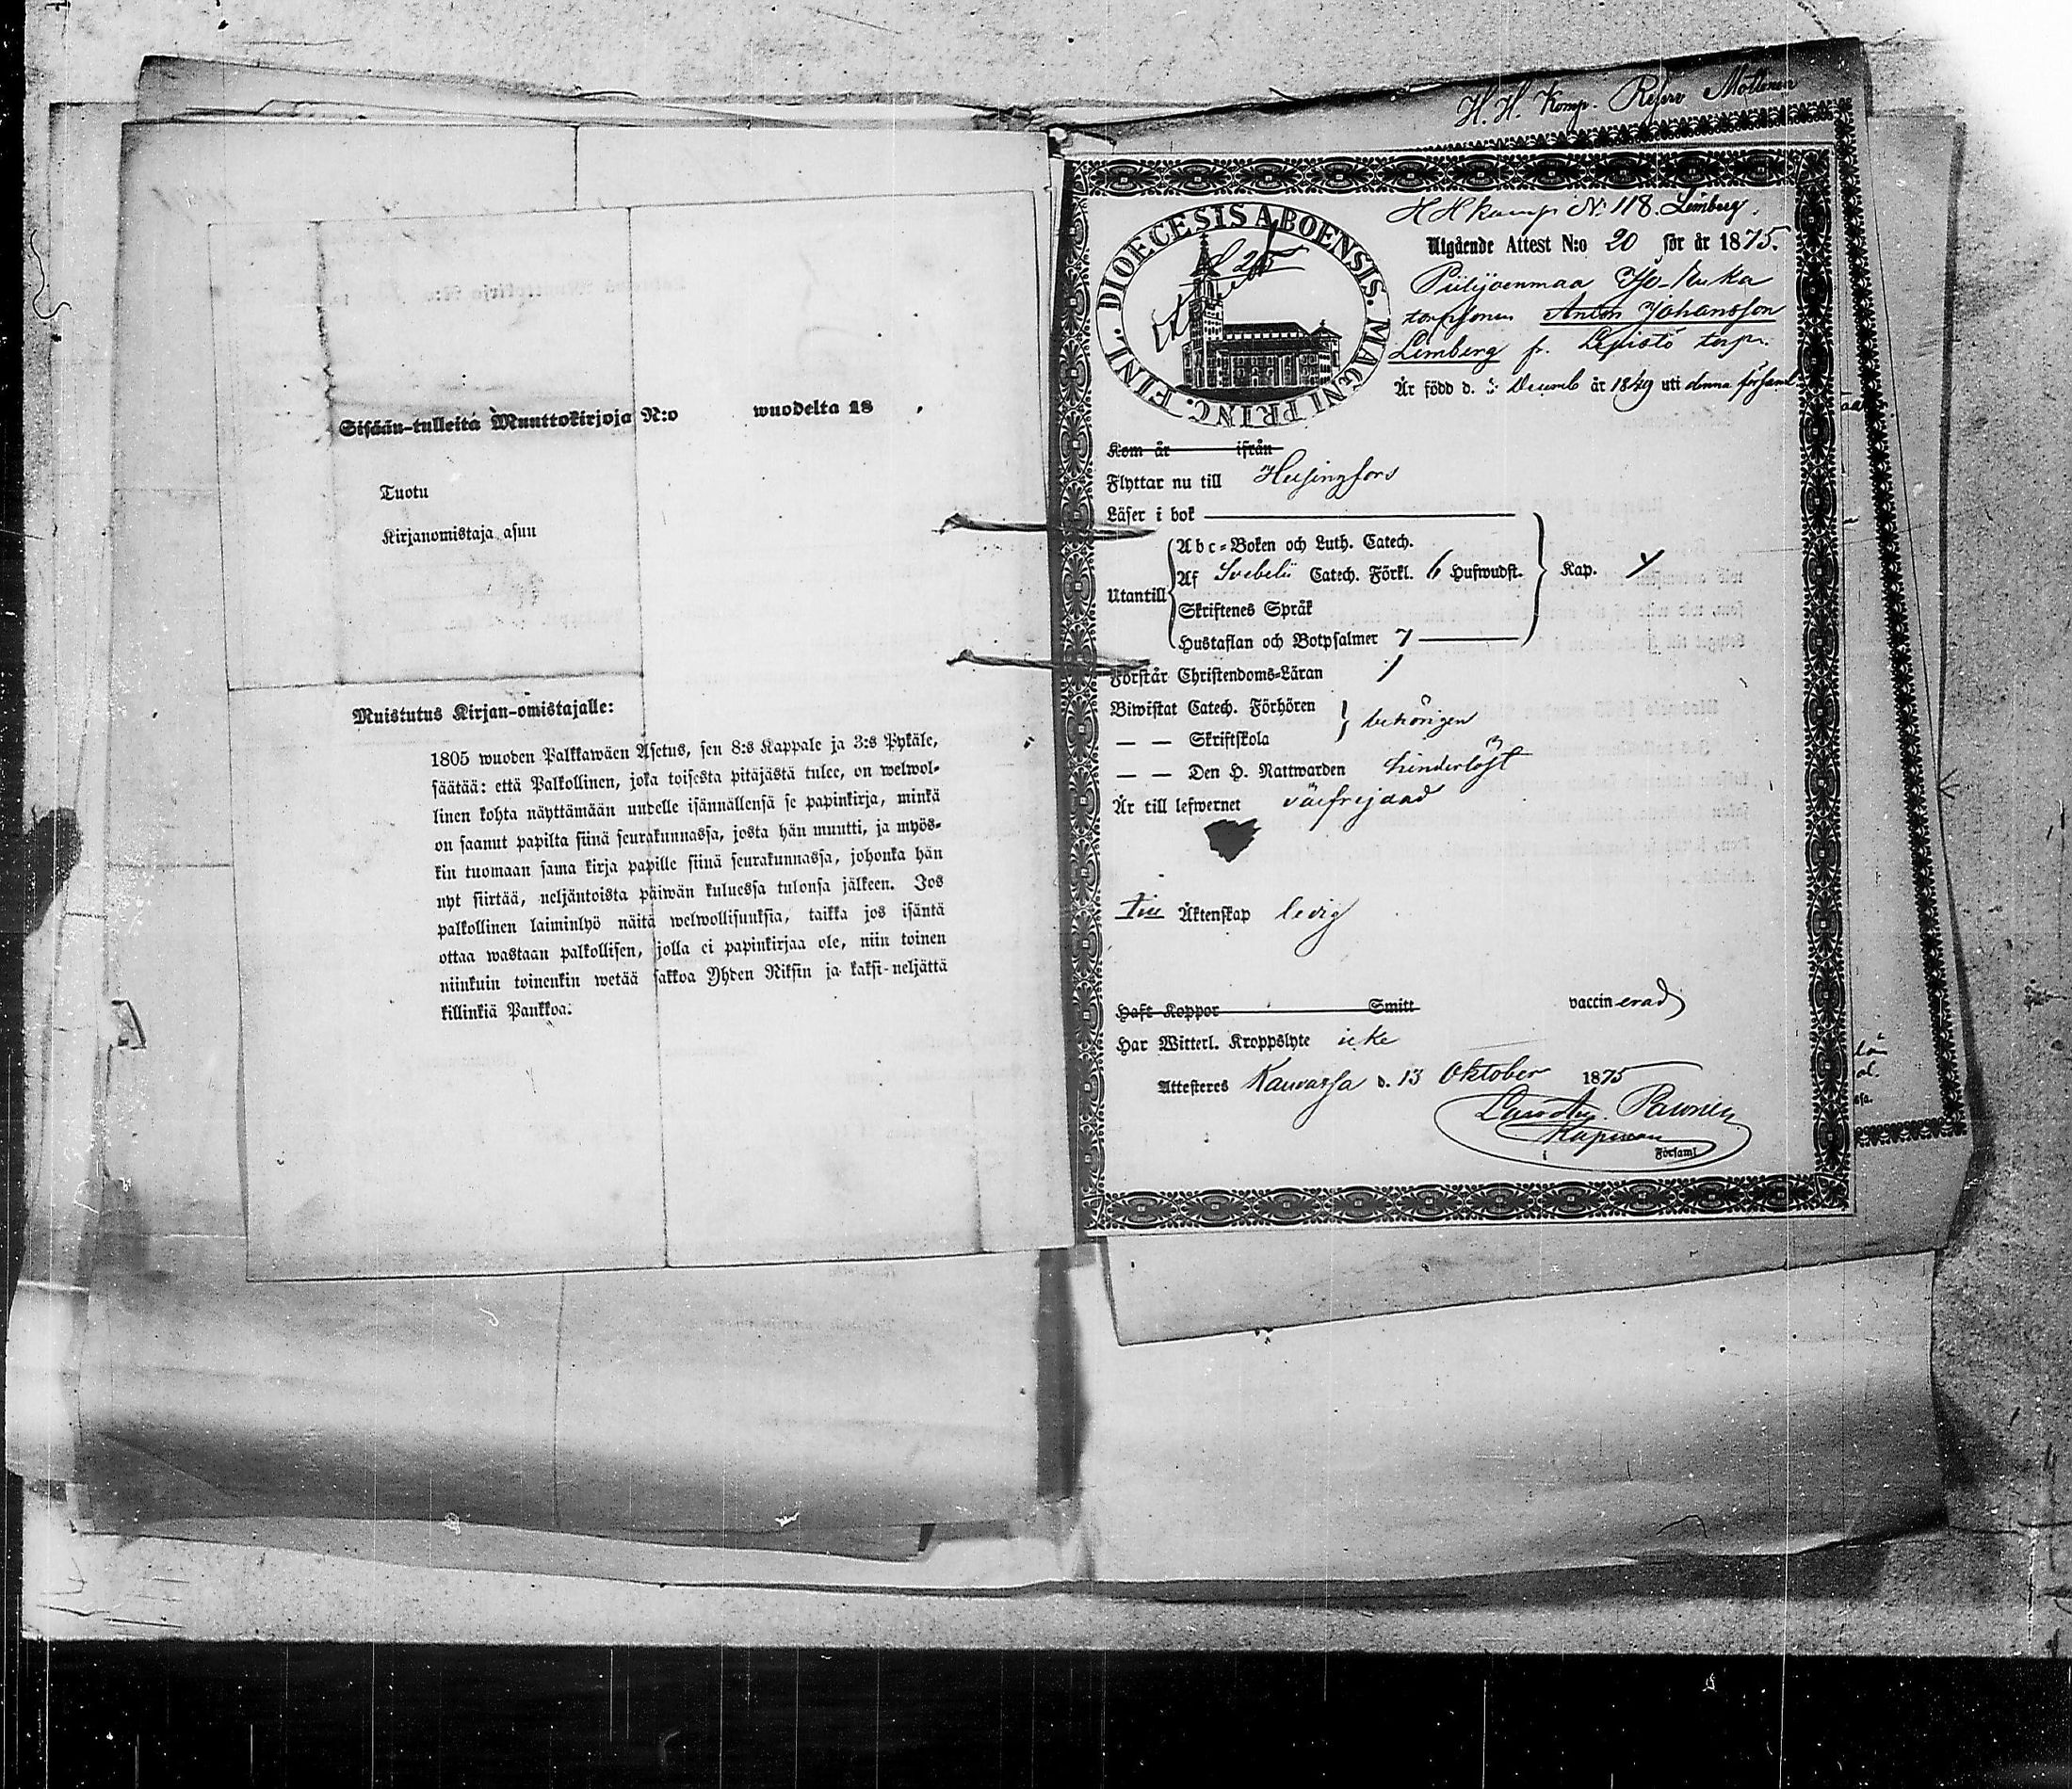 Sisään-tulleita Muuttokirjoja N:o wuodelta 18 .
Tuotu
Kirjanomistaja asuu
Muistutus Kirjan-omistajalle:
1805 wuoden Palkkawäen Asetus, sen 8:s Kappale ja 3:s Pykäle,
säätää: että Palkollinen, joka toisesta pitäjästä tulee, on welwol-
linen kohta näyttämään uudelle isännällensä se papinkirja, minkä
on saanut papilta siinä seurakunnassa, josta hän muutti, ja myös-
kin tuomaan sama kirja papille siinä seurakunnassa, johonka hän
nyt siirtää, neljäntoista päiwän kuluessa tulonsa jälkeen. Jos
palkollinen laiminlyö näitä welwollisuuksia, taikka jos isäntä
ottaa wastaan palkollisen, jolla ei papinkirjaa ole, niin toinen
niinkuin toinenkin wetää sakkoa Yhden Riksin ja kaksi-neljättä
killinkiä Pankkoa.
H. H. Komp. Reserv Mottonen
H H kamp N: 118. Limberg.
DIOECESIS ABOENSIS. MAGNI PRINC. FINL.
Utgående Attest N:o 20 för år 1875.
Piilijoenmaa
Anton Johansson
Limberg fr. Lepistö torp.
Är född d. Decemb år 1849 uti denna församl.
Kom år ifrån
Flyttar nu till Helsingfors
Läser i bok
Abc-Boken och Luth. Catech.
Af Svebelii Catech. Förkl. 6 Hufwudst. Kap.
Utantill
Skriftenes Språk
Hustaflan och Botpsalmer 7
Förstår Christendoms-Läran
Biwistat Catech. Förhören
behörigen
— — Skriftskola
— — Den H. Nattwarden hinderlöst
Är till lefwernet välfrejdad
Till Äktenskap ledig
Haft Koppor Smitt vaccinerad
Har Witterl. Kroppslyte icke
Attesteres Kauvatsa d. 13 Oktober 1875
Kapellan
i Församl